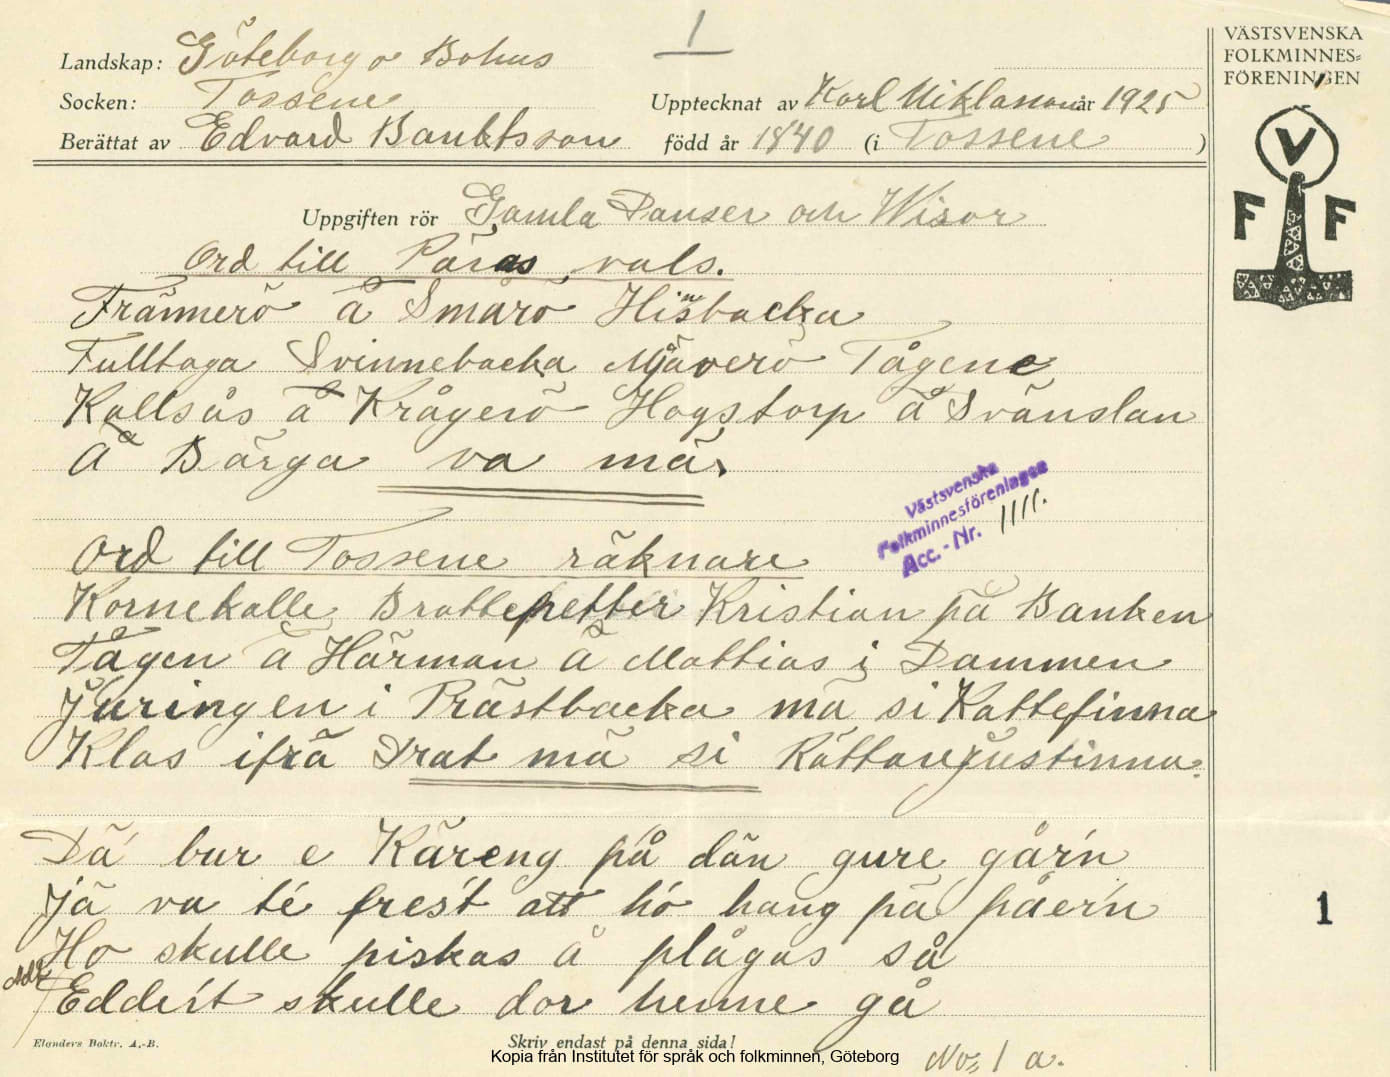 1
VÄSTSVENSKA
FOLKMINNES=
FÖRENINGEN
V
F F
Landskap: Göteborg o Bohus
Socken: Tossene
Upptecknat av Karl Niklasson år 1925
Berättat av Edvard
född år 1840 (i Tossene)
Uppgiften rör Gamla Danser och Wisor
Ord till Päras vals.
Främmerö å Smårö Hisbacka
Fulltaga Svinnebacka Mjäverö Tågene
Kallsås å Krågerö Hogstorp å Svänslan
Å Bärga va mä.
Västsvenska
Folkminnesföreningen
Acc.-Nr. 1111.
Ord till Tossene räknare
Kornekalle Brattepetter Kristian på Banken
Tågen å Härman å Mattias i Dammen
Juringen i Prästbacka må si Kattefinna
Klas ifrå Drat må si Råttanjustinna.
Dä bur e Käreng på dän gure gårn
Jä va te frest att ho hang på påern
Ho skulle piskas å plågas så
Eddert skulle dor henne gå
1
Elanders Boktr. A.-B.
Skriv endast på denna sida!
Kopia från Institutet för språk och folkminnen, Göteborg
No 1 a.